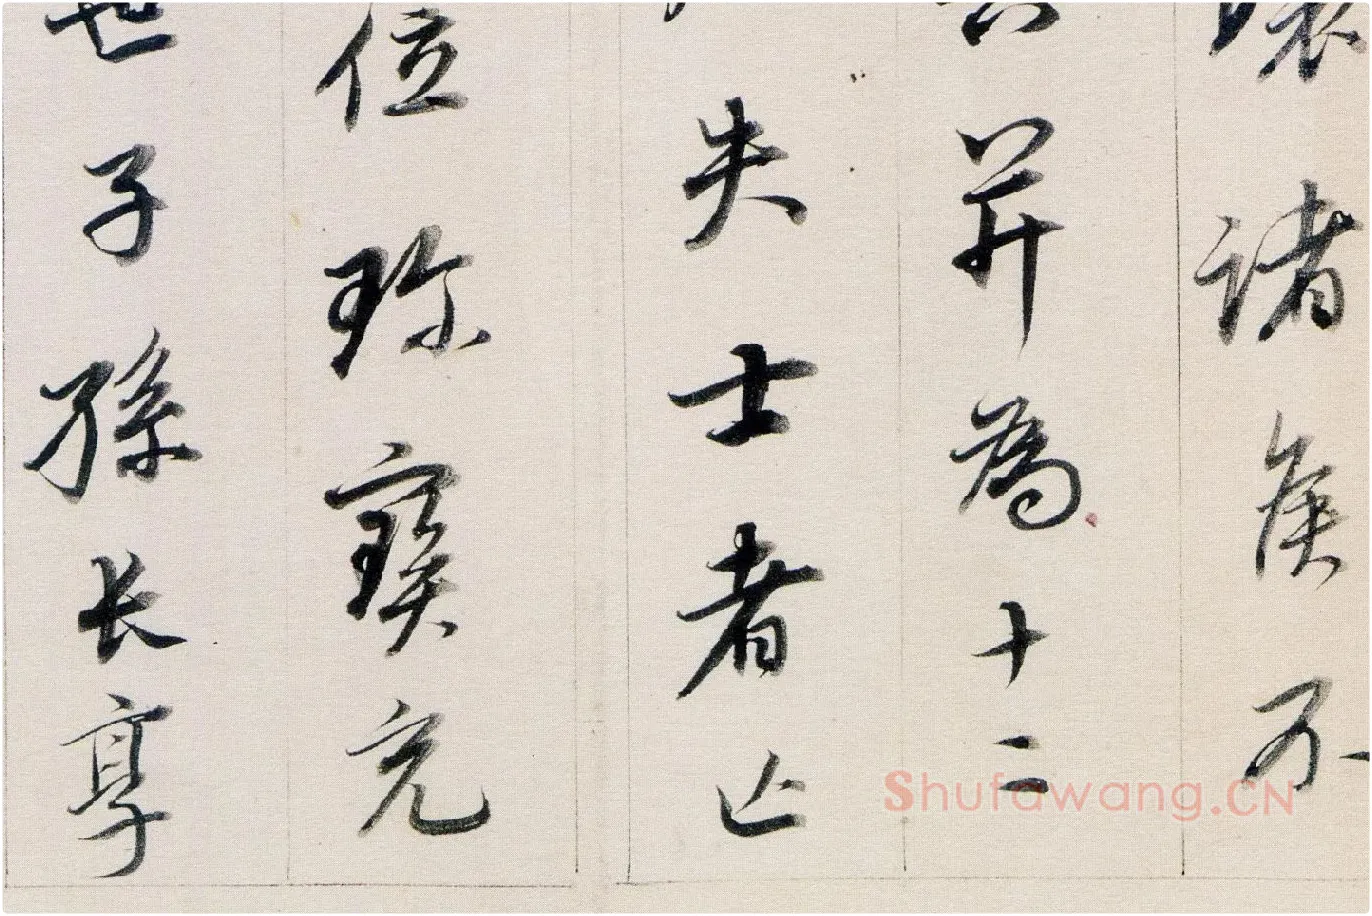 壞諸侯不
并為十二
失士者亡
位珎寶充
世子孫长享
Shufawang.CN